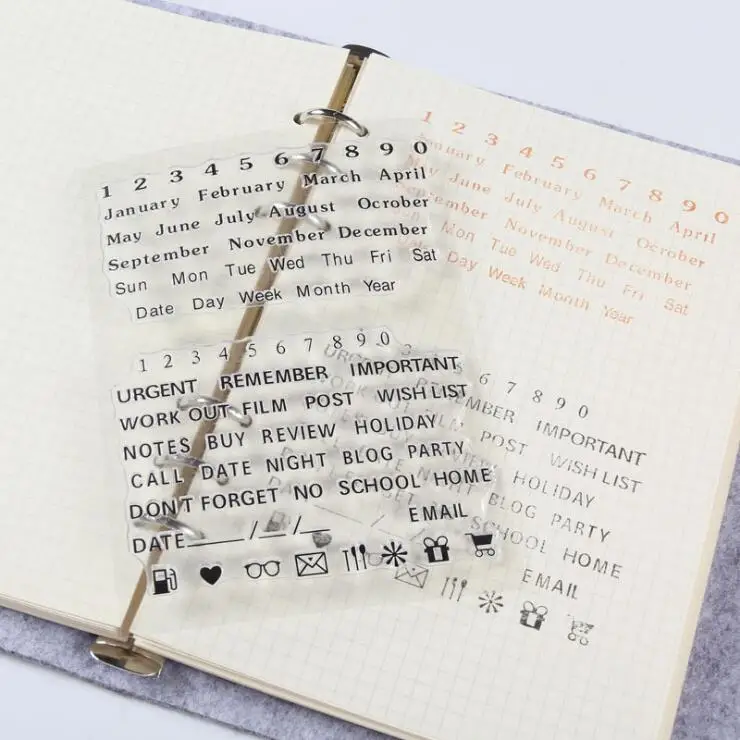 1 2 3 4 5 6 7 8 9 0
January February March April
May June July August Ocrober
September November December
Sun Mon Tue Wed Thu Fri Sat
Date Day Week Month Year
1 2 3 4 5 6 7 8 9 0
URGENT REMEMBER IMPORTANT
WORK OUT FILM POST WISH LIST
NOTES BUY REVIEW HOLIDAY
CALL DATE NIGHT BLOG PARTY
DON'T FORGET NO SCHOOL HOME
EMAIL
DATE____/__/__
1 2 3 4 5 6 7 8 9 0
January February March April
May June July August Ocrober
November December
Sun Mon Tue Wed Thu Fri Sat
Day Week Month Year
6 7 8 9 0
IMPORTANT
POST WISH LIST
HOLIDAY
BLOG PARTY
SCHOOL HOME
EMAIL